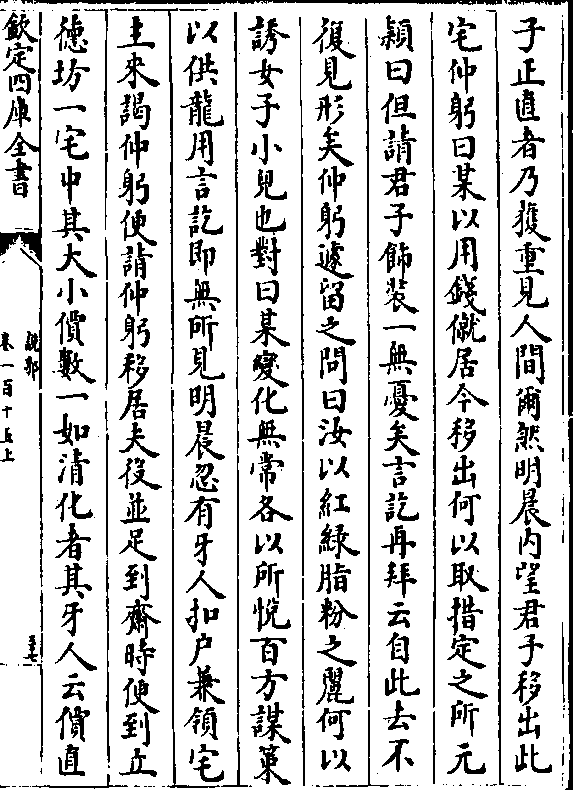 子正直者乃獲重見人間爾然明晨内望君子移出此
宅仲躬曰某以用錢僦居今移出何以取措定之所元
穎曰但請君子飾裝一無憂矣言訖再拜云自此去不
復見形矣仲躬遽留之問曰汝以紅緑脂粉之麗何以
誘女子小兒也對曰某變化無常各以所悦百方謀策
以供龍用言訖即無所見明晨忽有牙人扣户兼領宅
主來謁仲躬便請仲躬移居夫役並足到齋時便到立
徳坊一宅中其大小價數一如清化者其牙人云價直
欽定四庫全書
説郛
卷一百十五上